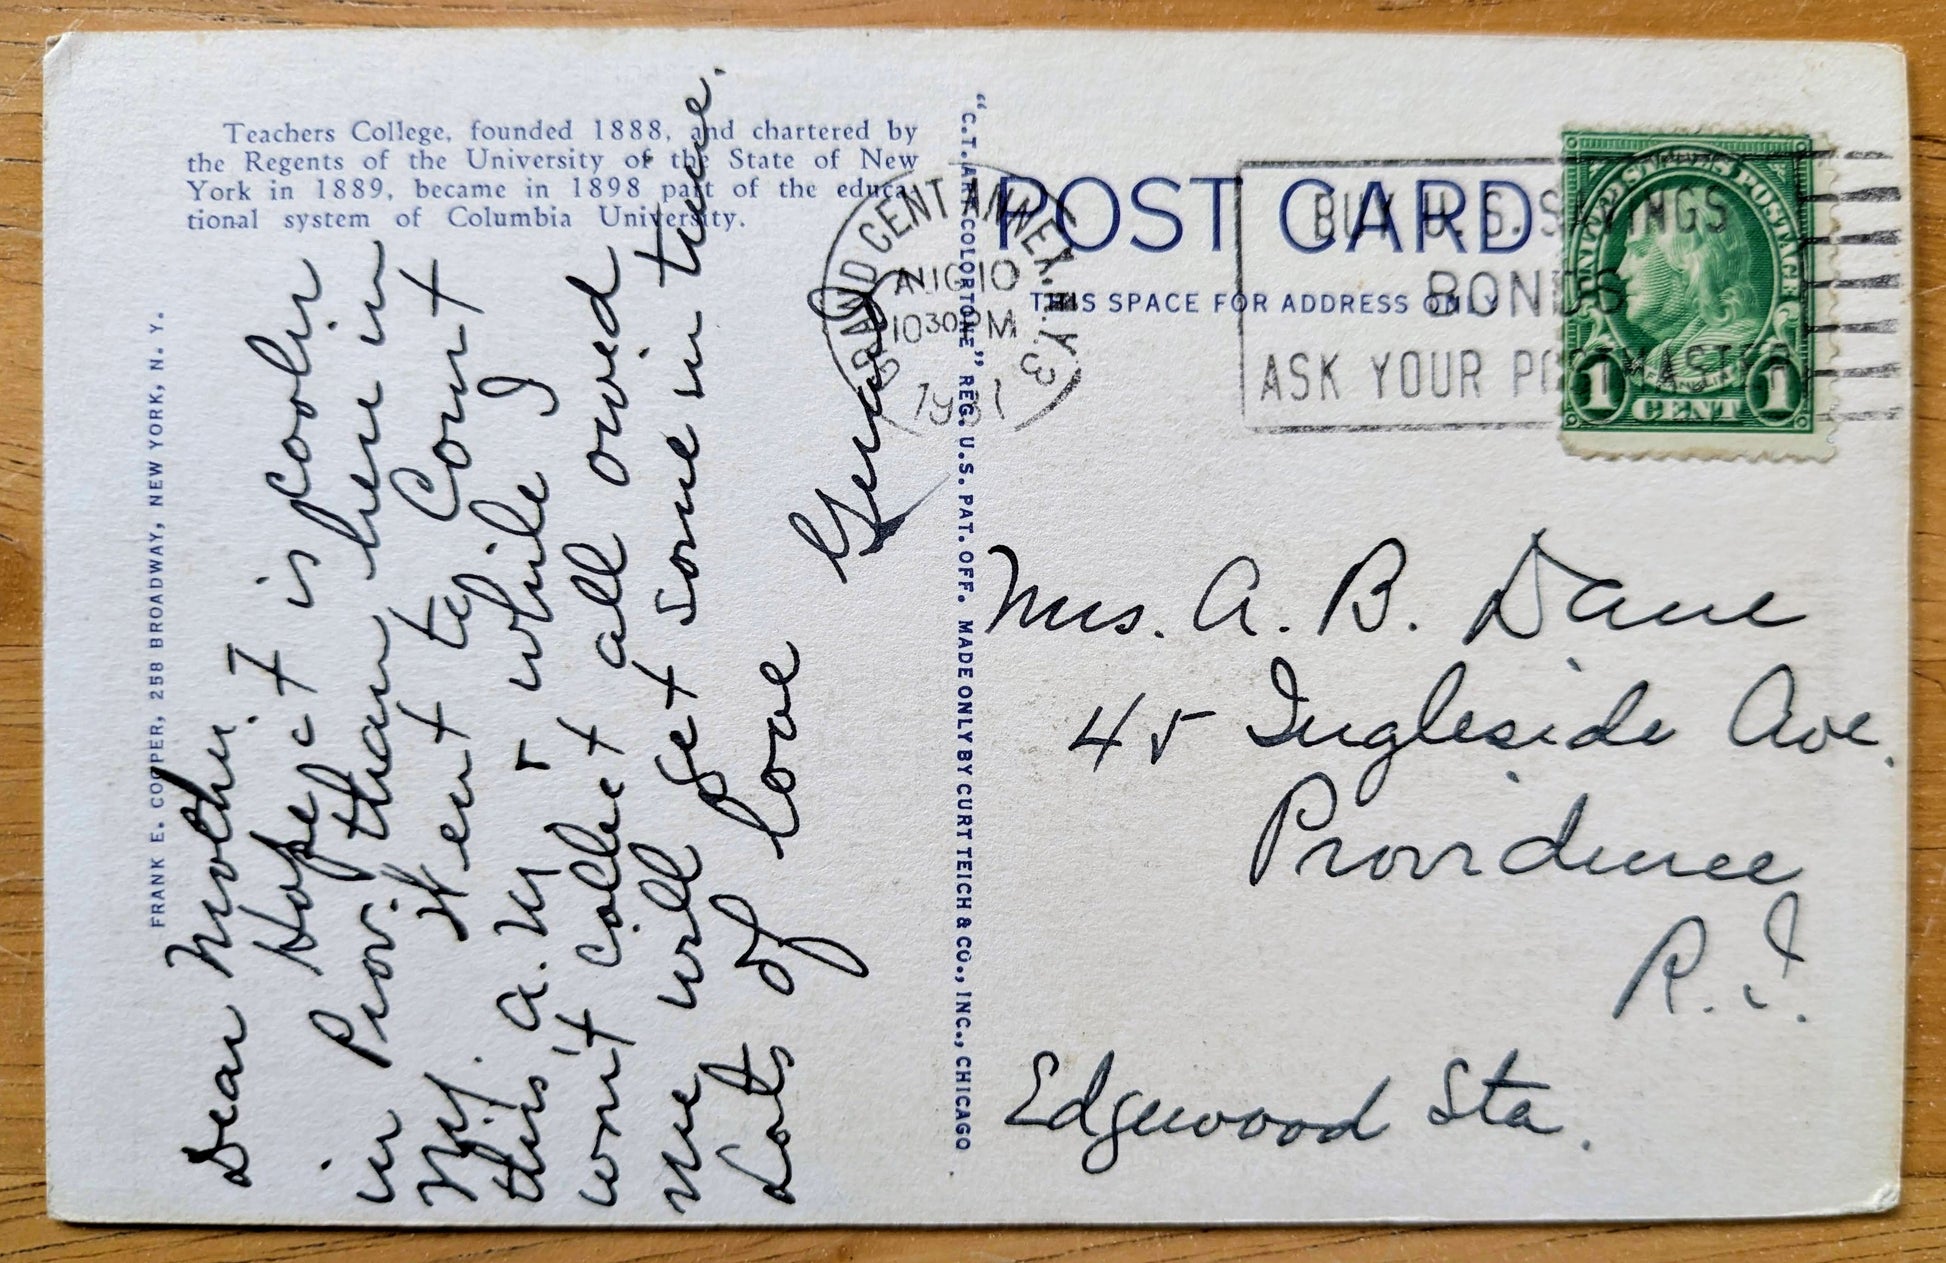 Teachers College, founded 1888, and chartered by
the Regents of the University of the State of New
York in 1889, became in 1898 part of the educa-
tional system of Columbia University.
FRANK E. COOPER, 258 BROADWAY, NEW YORK, N. Y.
Dear Mother:
Hope it is cooler
in Prov. than here in
N.Y. Went to Court
this A.M. & while I
won't collect all owed
me will get some in time.
Lots of love
"C.T. ART-COLORTONE" REG. U.S. PAT. OFF. MADE ONLY BY CURT TEICH & CO., INC., CHICAGO
GRAND CENT ANNEX. N.Y. 3
AUG 10
10 30 PM
POST CARD
THIS SPACE FOR ADDRESS ONLY
BUY U.S. SAVINGS
BONDS
ASK YOUR POSTMASTER
UNITED STATES POSTAGE
FRANKLIN
1 CENT 1
Mrs. A. B. Dane
45 Ingleside Ave.
Providence
R.I.
Edgewood Sta.